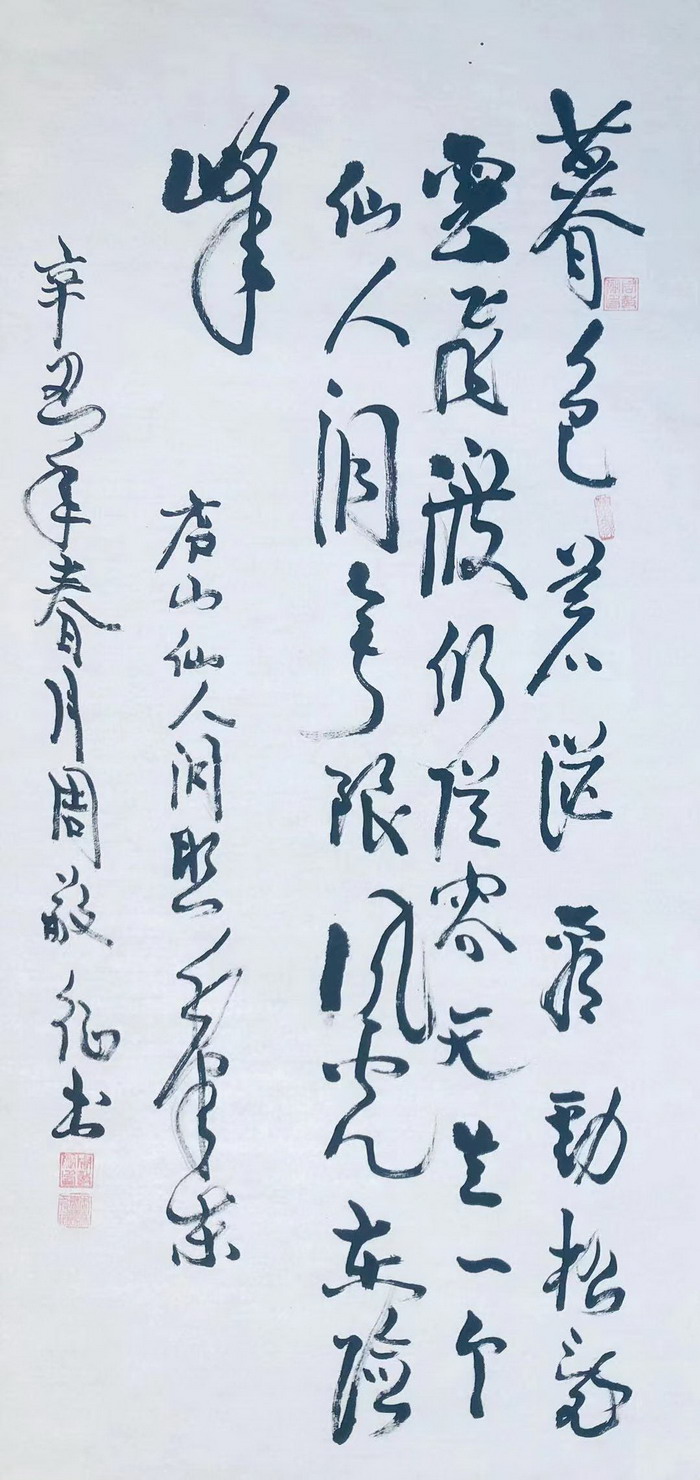 暮色苍茫看劲松亂
雲飞渡仍從容天生一个
仙人洞无限风光在险
峰
庐山仙人洞照
辛丑年春月周敬征书